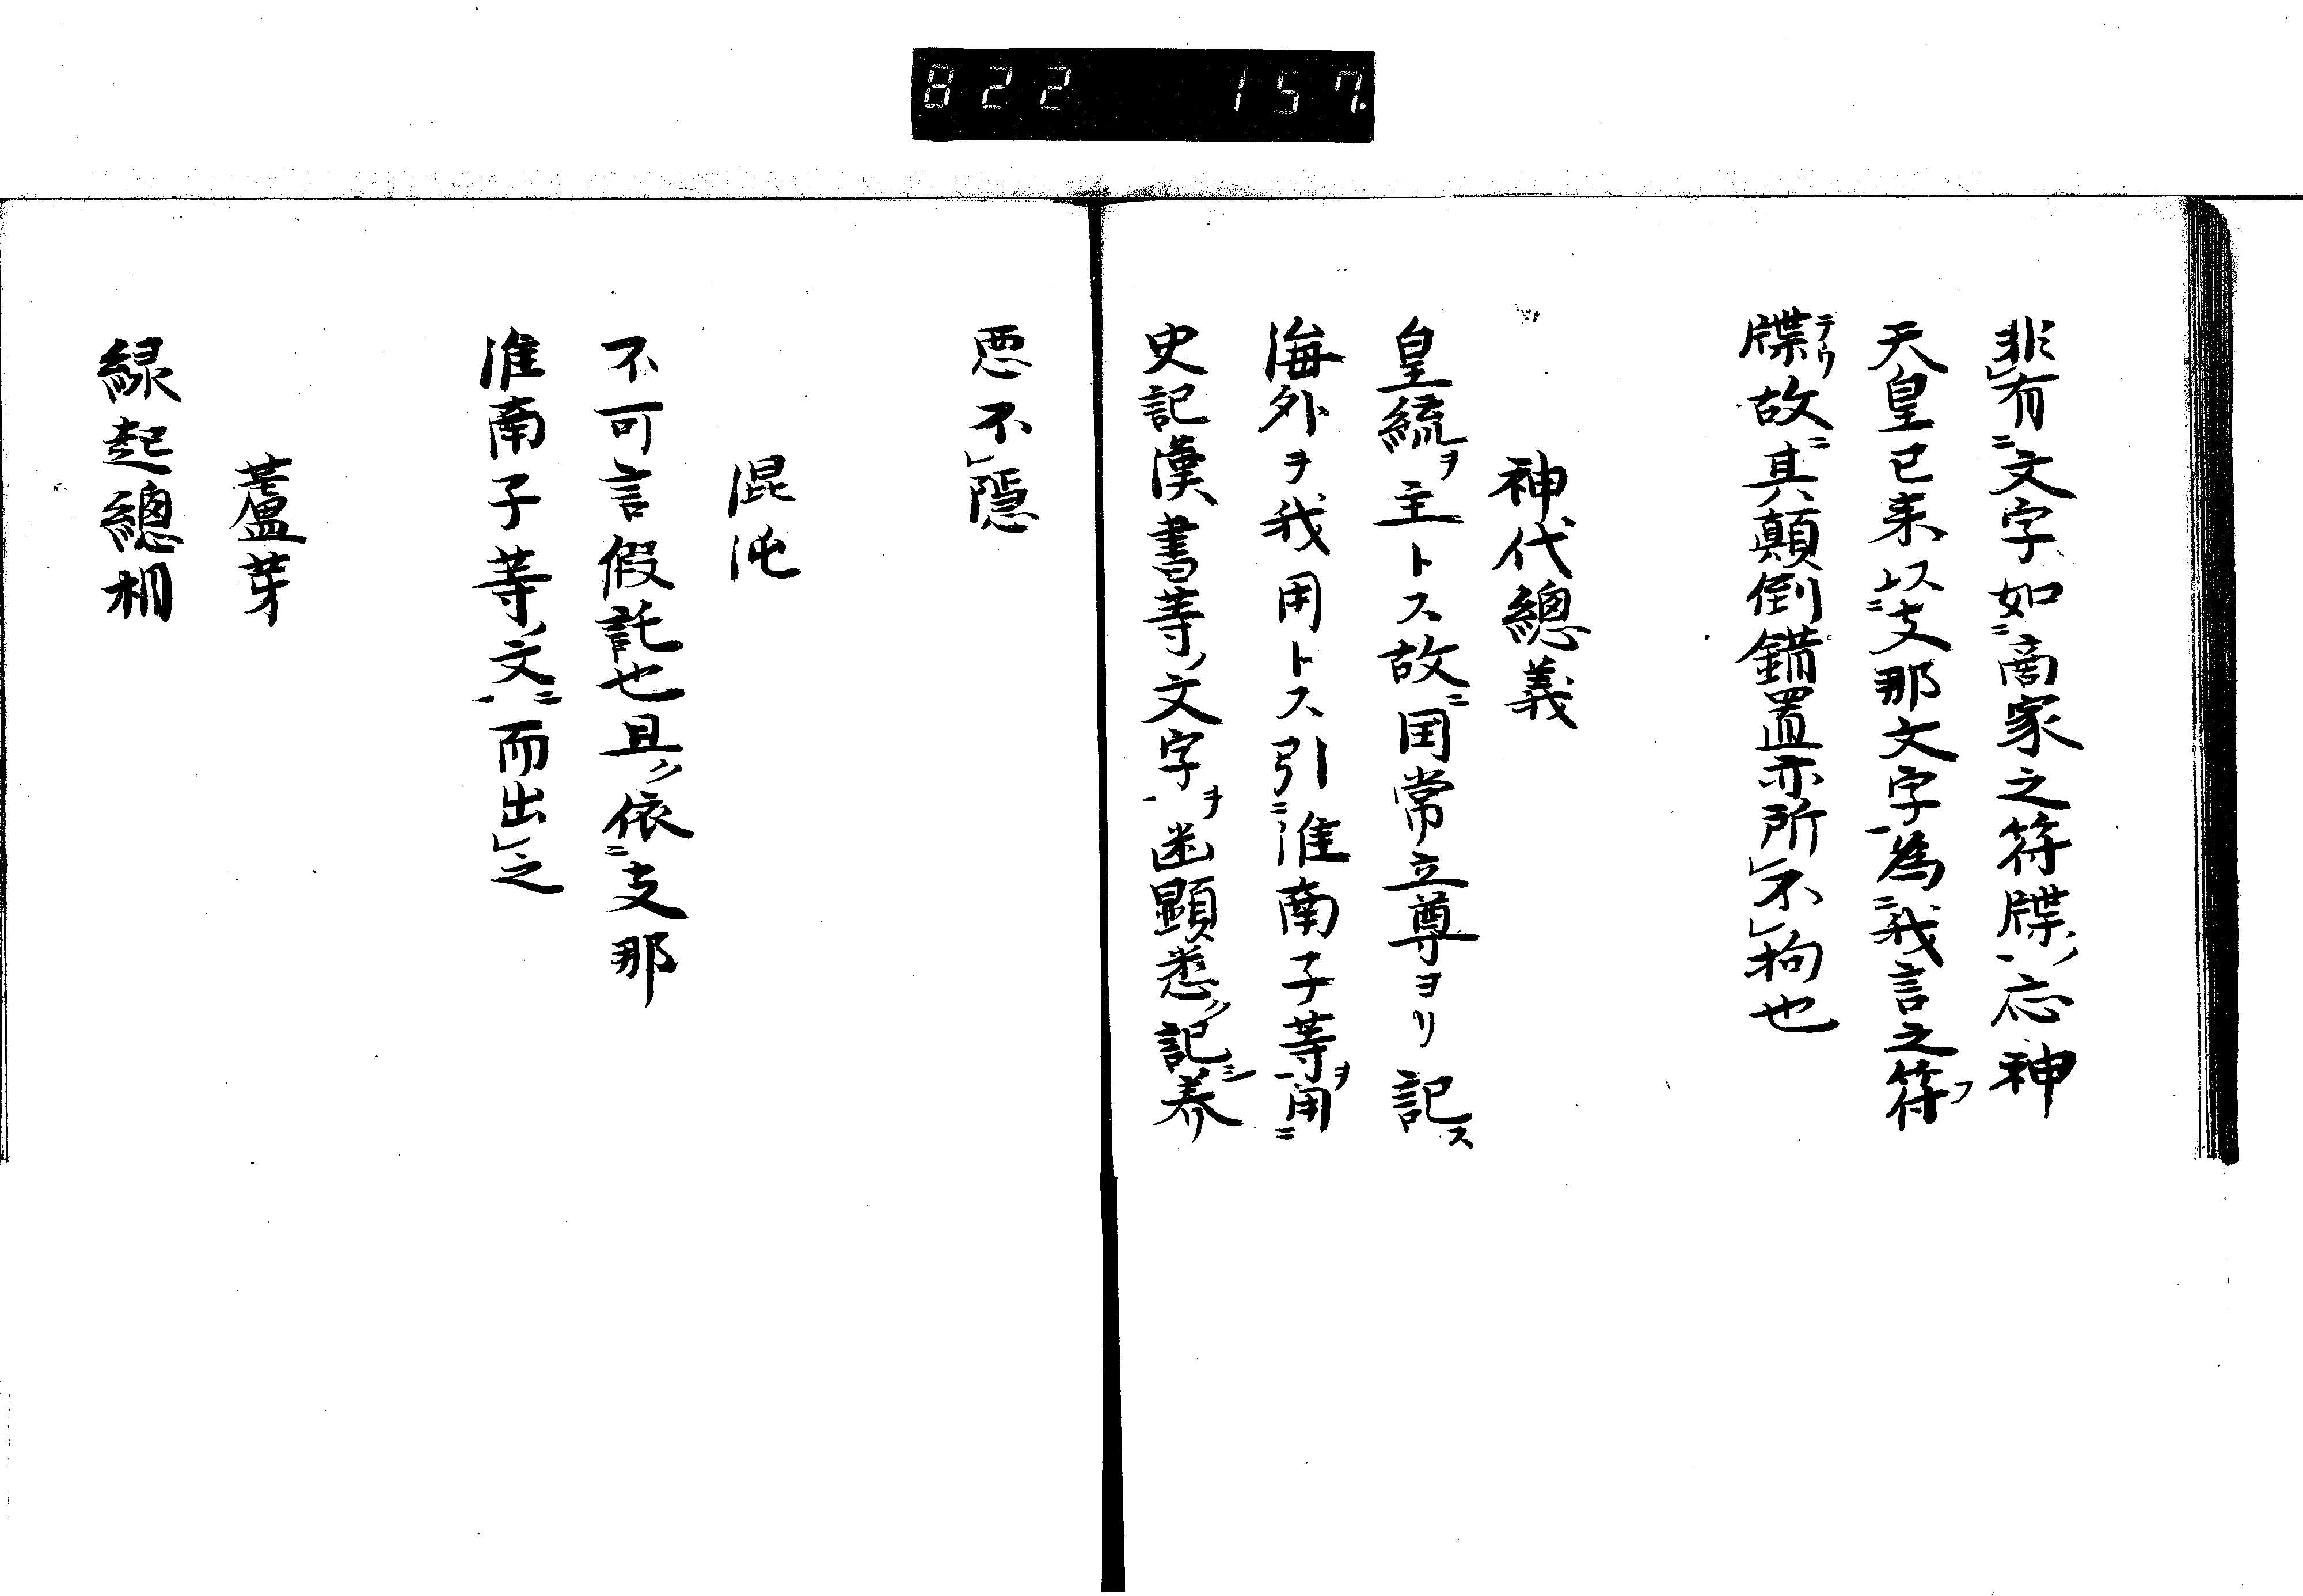 822 157.
非㆑有㆓文字如㆓商家之符牒ノ㆒応神
天皇已来以㆓支那文字㆒為㆓我言之符
牒テウ故ニ其顛倒錯置亦所㆑不㆑拘也
神代總義
皇統ヲ主トス故ニ国常立尊ヨリ記ス
海外ヲ我用トス引㆓淮南子等ヲ㆒用㆓
史記漢書等ノ文字ヲ㆒幽顕悉ク記シ善
悪不㆑隠
混沌
不可言假託也且ク依㆓支那
淮南子等ノ文ニ㆒而出㆑之
蘆芽
縁起總相